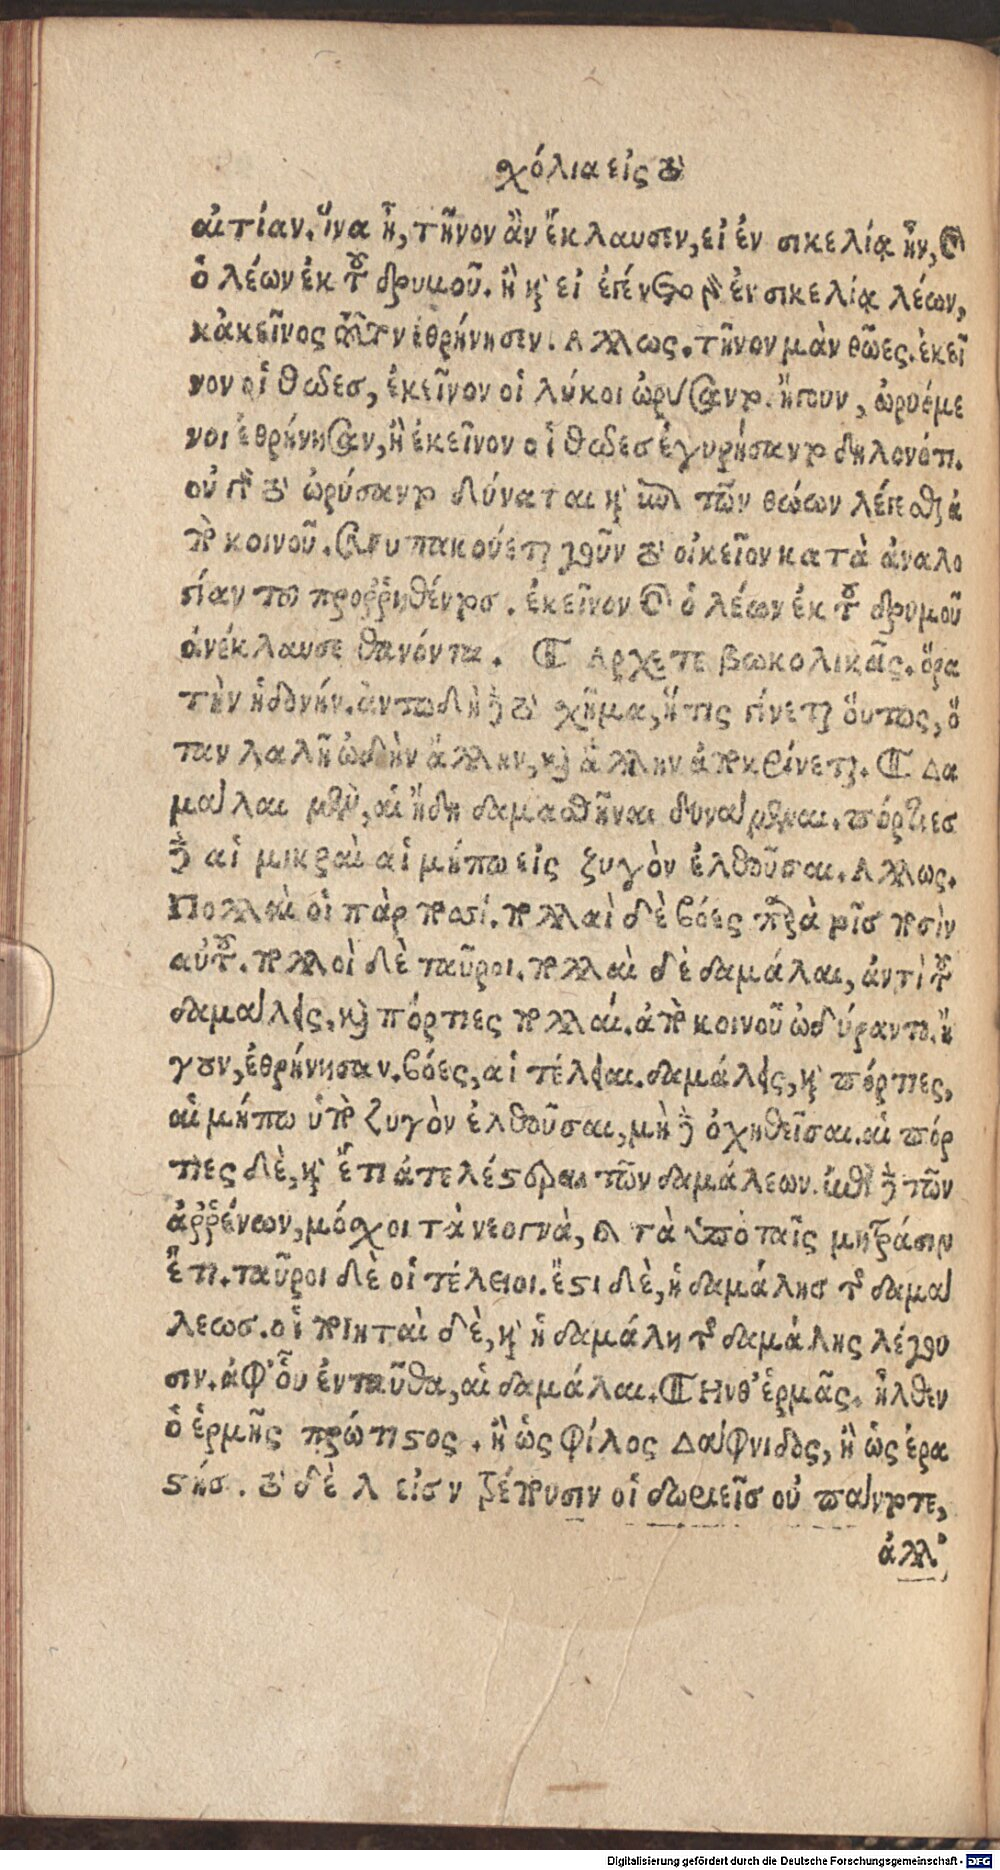 χόλια εἰς τὸ
αἰτίαν. ἵνα ᾖ, τῆνον ἂν ἔκλαυσεν, εἰ ἐν σικελίᾳ ἦν, καὶ
ὁ λέων ἐκ τοῦ δρυμοῦ. ἢ καὶ εἰ ἐπένθουν ἐν σικελίᾳ λέων,
κἀκεῖνος ἐθρήνησεν. Αλλως. τῆνον μὰν θῶες. ἐκεῖ
νον οἱ θῶδεσ, ἐκεῖνον οἱ λύκοι ὠρύσαντο. ἤγουν, ὠρυόμε
νοι ἐθρήνησαν, ἢ ἐκεῖνον οἱ θῶδεσ ἐγυρήσαντο δηλονότι.
οὐ γὰρ τὸ ὠρύσαντο δύναται καὶ ἐπὶ τῶν θώων λέγεσθαι ἀ
πὸ κοινοῦ. συπακούεται γοῦν τὸ οἰκεῖον κατὰ ἀναλο
γίαν τοῦ προῤῥηθέντοσ. ἐκεῖνον καὶ ὁ λέων ἐκ τοῦ δρυμοῦ
ἀνέκλαυσε θανόντα. ¶ Αρχετε βωκολικᾶς. ὅρα
τὴν ἡδονήν. ἀντωδὴ γὰρ τὸ χῆμα, ἥτις γίνεται οὕτως, ὅ
ταν λαλῇ ὠδὴν ἄλλην, καὶ ἄλλην ἀποκρίνεται. ¶ Δα
μάλαι μὲν, αἱ ἤδη δαμασθῆναι δυνάμεναι. πόρτιεσ
δὲ αἱ μικραὶ αἱ μήπω εἰς ζυγὸν ἐλθοῦσαι. Αλλως.
Πολλαὶ οἱ πὰρ ποσί. πολλαὶ δὲ βόες παρὰ τοῖσ ποσὶν
αὐτοῦ. πολλοὶ δὲ ταῦροι. πολλαὶ δὲ δαμάλαι, ἀντὶ τοῦ
δαμάλεις, καὶ πόρτιες πολλαί. ἀπὸ κοινοῦ ὠδύραντο. ἤ
γουν, ἐθρήνησαν. βόες, αἱ τέλειαι. δαμάλεις, καὶ πόρτιες,
αἱ μήπω ὑπὸ ζυγὸν ἐλθοῦσαι, μὴ δὲ ὀχηθεῖσαι. αἱ πόρ
τιες δὲ, καὶ ἔτι ἀτελέστεραι τῶν δαμάλεων. ἐπὶ δὲ τῶν
ἀῤῥένων, μόχοι τὰ νεογνὰ, καὶ τὰ ὑπὸ ταῖς μητράσιν
ἔτι. ταῦροι δὲ οἱ τέλειοι. ἔστι δὲ, ἡ δαμάλησ τῆς δαμά
λεωσ. οἱ ποιηταὶ δὲ, καὶ ἡ δαμάλη τῆς δαμάλης λέγου
σιν. ἀφ' οὗ ἐνταῦθα, αἱ δαμάλαι. ¶ Ηνθ' ἑρμᾶς. ἦλθεν
ὁ ἑρμῆς πρώτιστος. ἢ ὡς φίλος Δάφνιδος, ἢ ὡς ἐρα
στήσ. τὸ δὲ λ εἰσ ν τρέπουσιν οἱ δωριεῖσ οὐ πάντοτε,
ἀλλ'
Digitalisierung gefördert durch die Deutsche Forschungsgemeinschaft - DFG